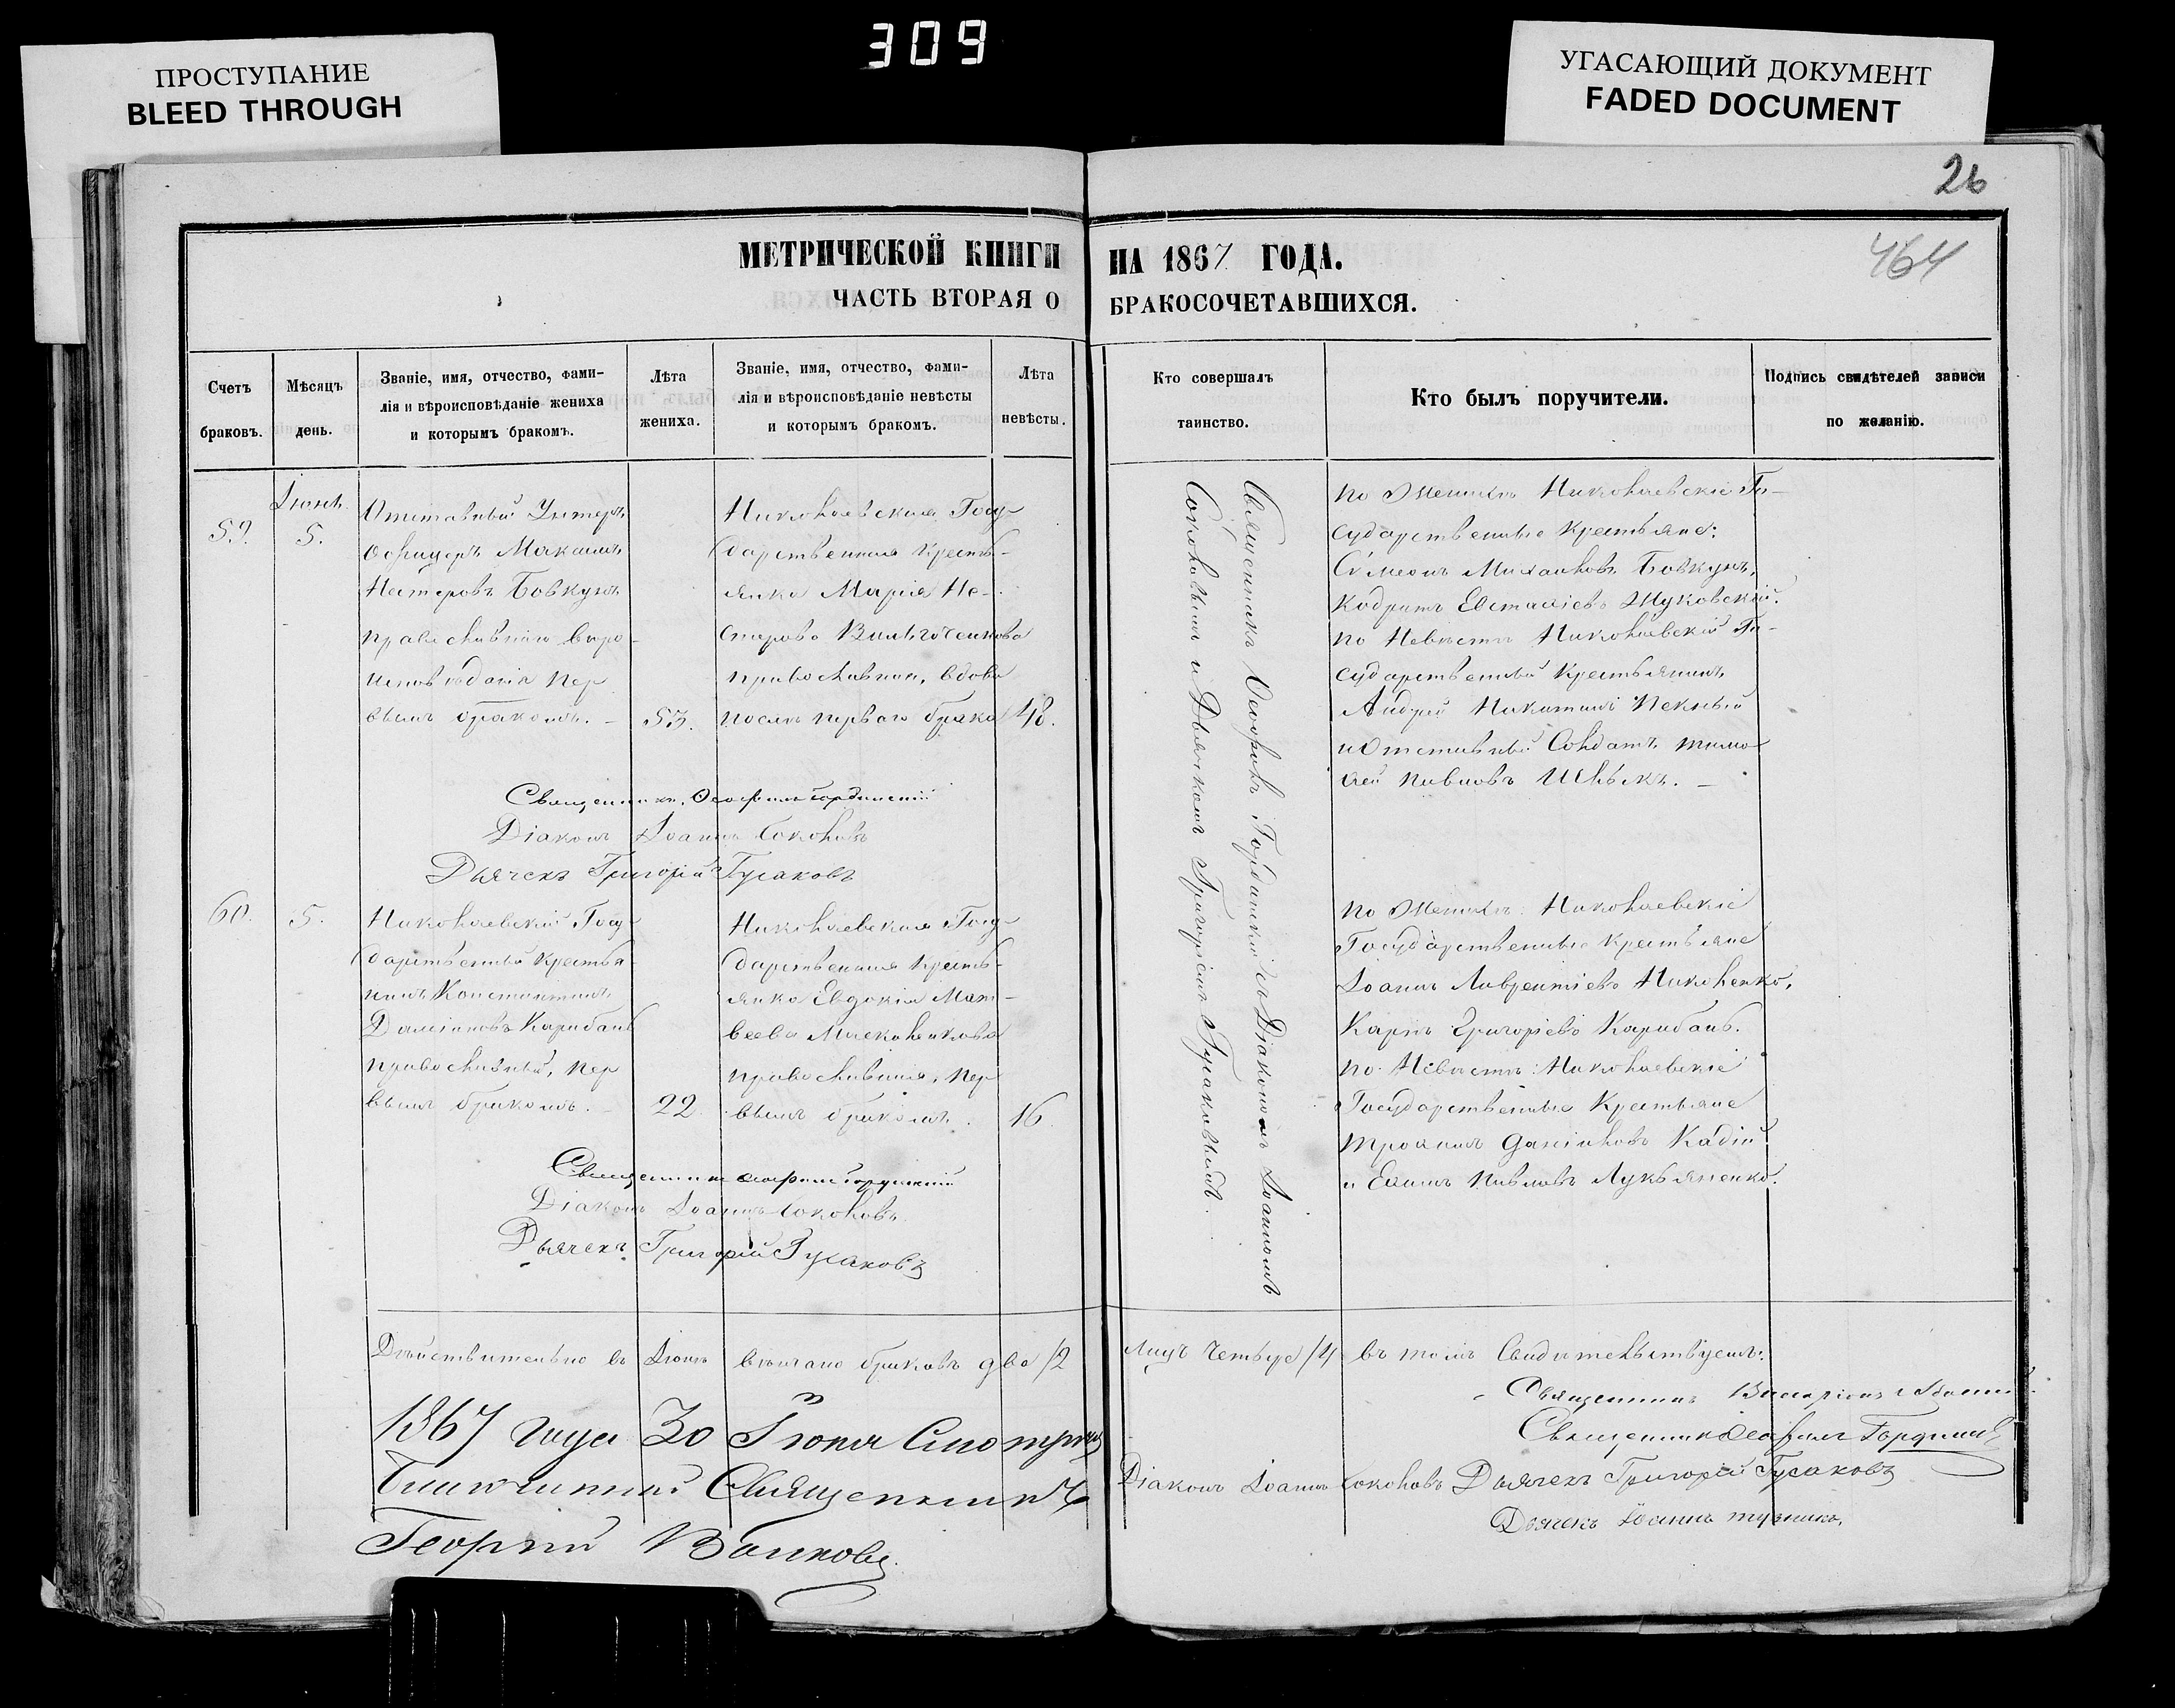 309
ПРОСТУПАНИЕ
BLEED THROUGH
УГАСАЮЩИЙ ДОКУМЕНТ
FADED DOCUMENT
26
464
МЕТРИЧЕСКОЙ КНИГИ НА 1867 ГОДА.
ЧАСТЬ ВТОРАЯ О БРАКОСОЧЕТАВШИХСЯ.
Счетъ
браковъ.
Мѣсяцъ
день.
Званіе, имя, отчество, фами-
лія и вѣроисповѣданіе жениха
и которымъ бракомъ.
Лѣта
жениха.
Званіе, имя, отчество, фами-
лія и вѣроисповѣданіе невѣсты
и которымъ бракомъ.
Лѣта
невѣсты.
Кто совершалъ
таинство.
Кто былъ поручители.
Подпись свидѣтелей записи
по желанію.
59.
Іюнь
5.
Отставный Унтеръ
Офицеръ Максимъ
Нестеровъ Бовкунъ
православнаго вѣро
исповѣданія пер
вымъ бракомъ.
53.
Николаевская Госу-
дарственная кресть-
янка Марія Не-
стерова
православная, вдова
послѣ перваго брака
48.
Священникъ Ѳеофилъ Гординскій и съ Діакономъ Іоанномъ
Соколовымъ и Дьячкомъ Григоріемъ Гусаковымъ.
по Женихѣ Николаевскіе Го-
сударственные крестьяне:
Сѵмеонъ Михаиловъ Бовкунъ,
Кодратъ Евстаѳіевъ Жуковскій.
по Невѣстѣ Николаевскій Го-
сударственный крестьянинъ
Андрей Никитинъ Пекный
и Отставный Солдатъ Тимо
ѳей Павловъ
Священникъ Ѳеофилъ Гординскій
Діаконъ Іоаннъ Соколовъ
Дьячекъ Григорій Гусаковъ
60.
5.
Николаевскій Госу-
дарственный крестья-
нинъ Константинъ
Даміановъ Карабань
православный, пер
вымъ бракомъ.
22
Николаевская Госу-
дарственная кресть-
янка Евдокія Мат-
веева
православная, пер
вымъ бракомъ.
16.
по Женихѣ: Николаевскіе
Государственные крестьяне
Іоаннъ Лаврентіевъ Николенко,
Карпъ Григоріевъ Карабань.
по Невѣстѣ: Николаевскіе
Государственные Крестьяне
Троянъ Даніиловъ Кадій
и Евѳимъ Павловъ Лукьяненко.
Священникъ Ѳеофилъ Гординскій
Діаконъ Іоаннъ Соколовъ
Дьячекъ Григорій Гусаковъ
Дѣйствительно въ Іюнѣ вѣнчано браковъ два /2 Лицъ четверо /4 въ томъ Свидѣтельствуемъ:
Священникъ Виссаріонъ
Священникъ Ѳеофилъ Гординскій
Діаконъ Іоаннъ Соколовъ Дьячекъ Григорій Гусаковъ
Дьячекъ Іоаннъ
1867 года 30 Іюня Смотрѣлъ
Благочинный Священникъ
Георгій Волковъ